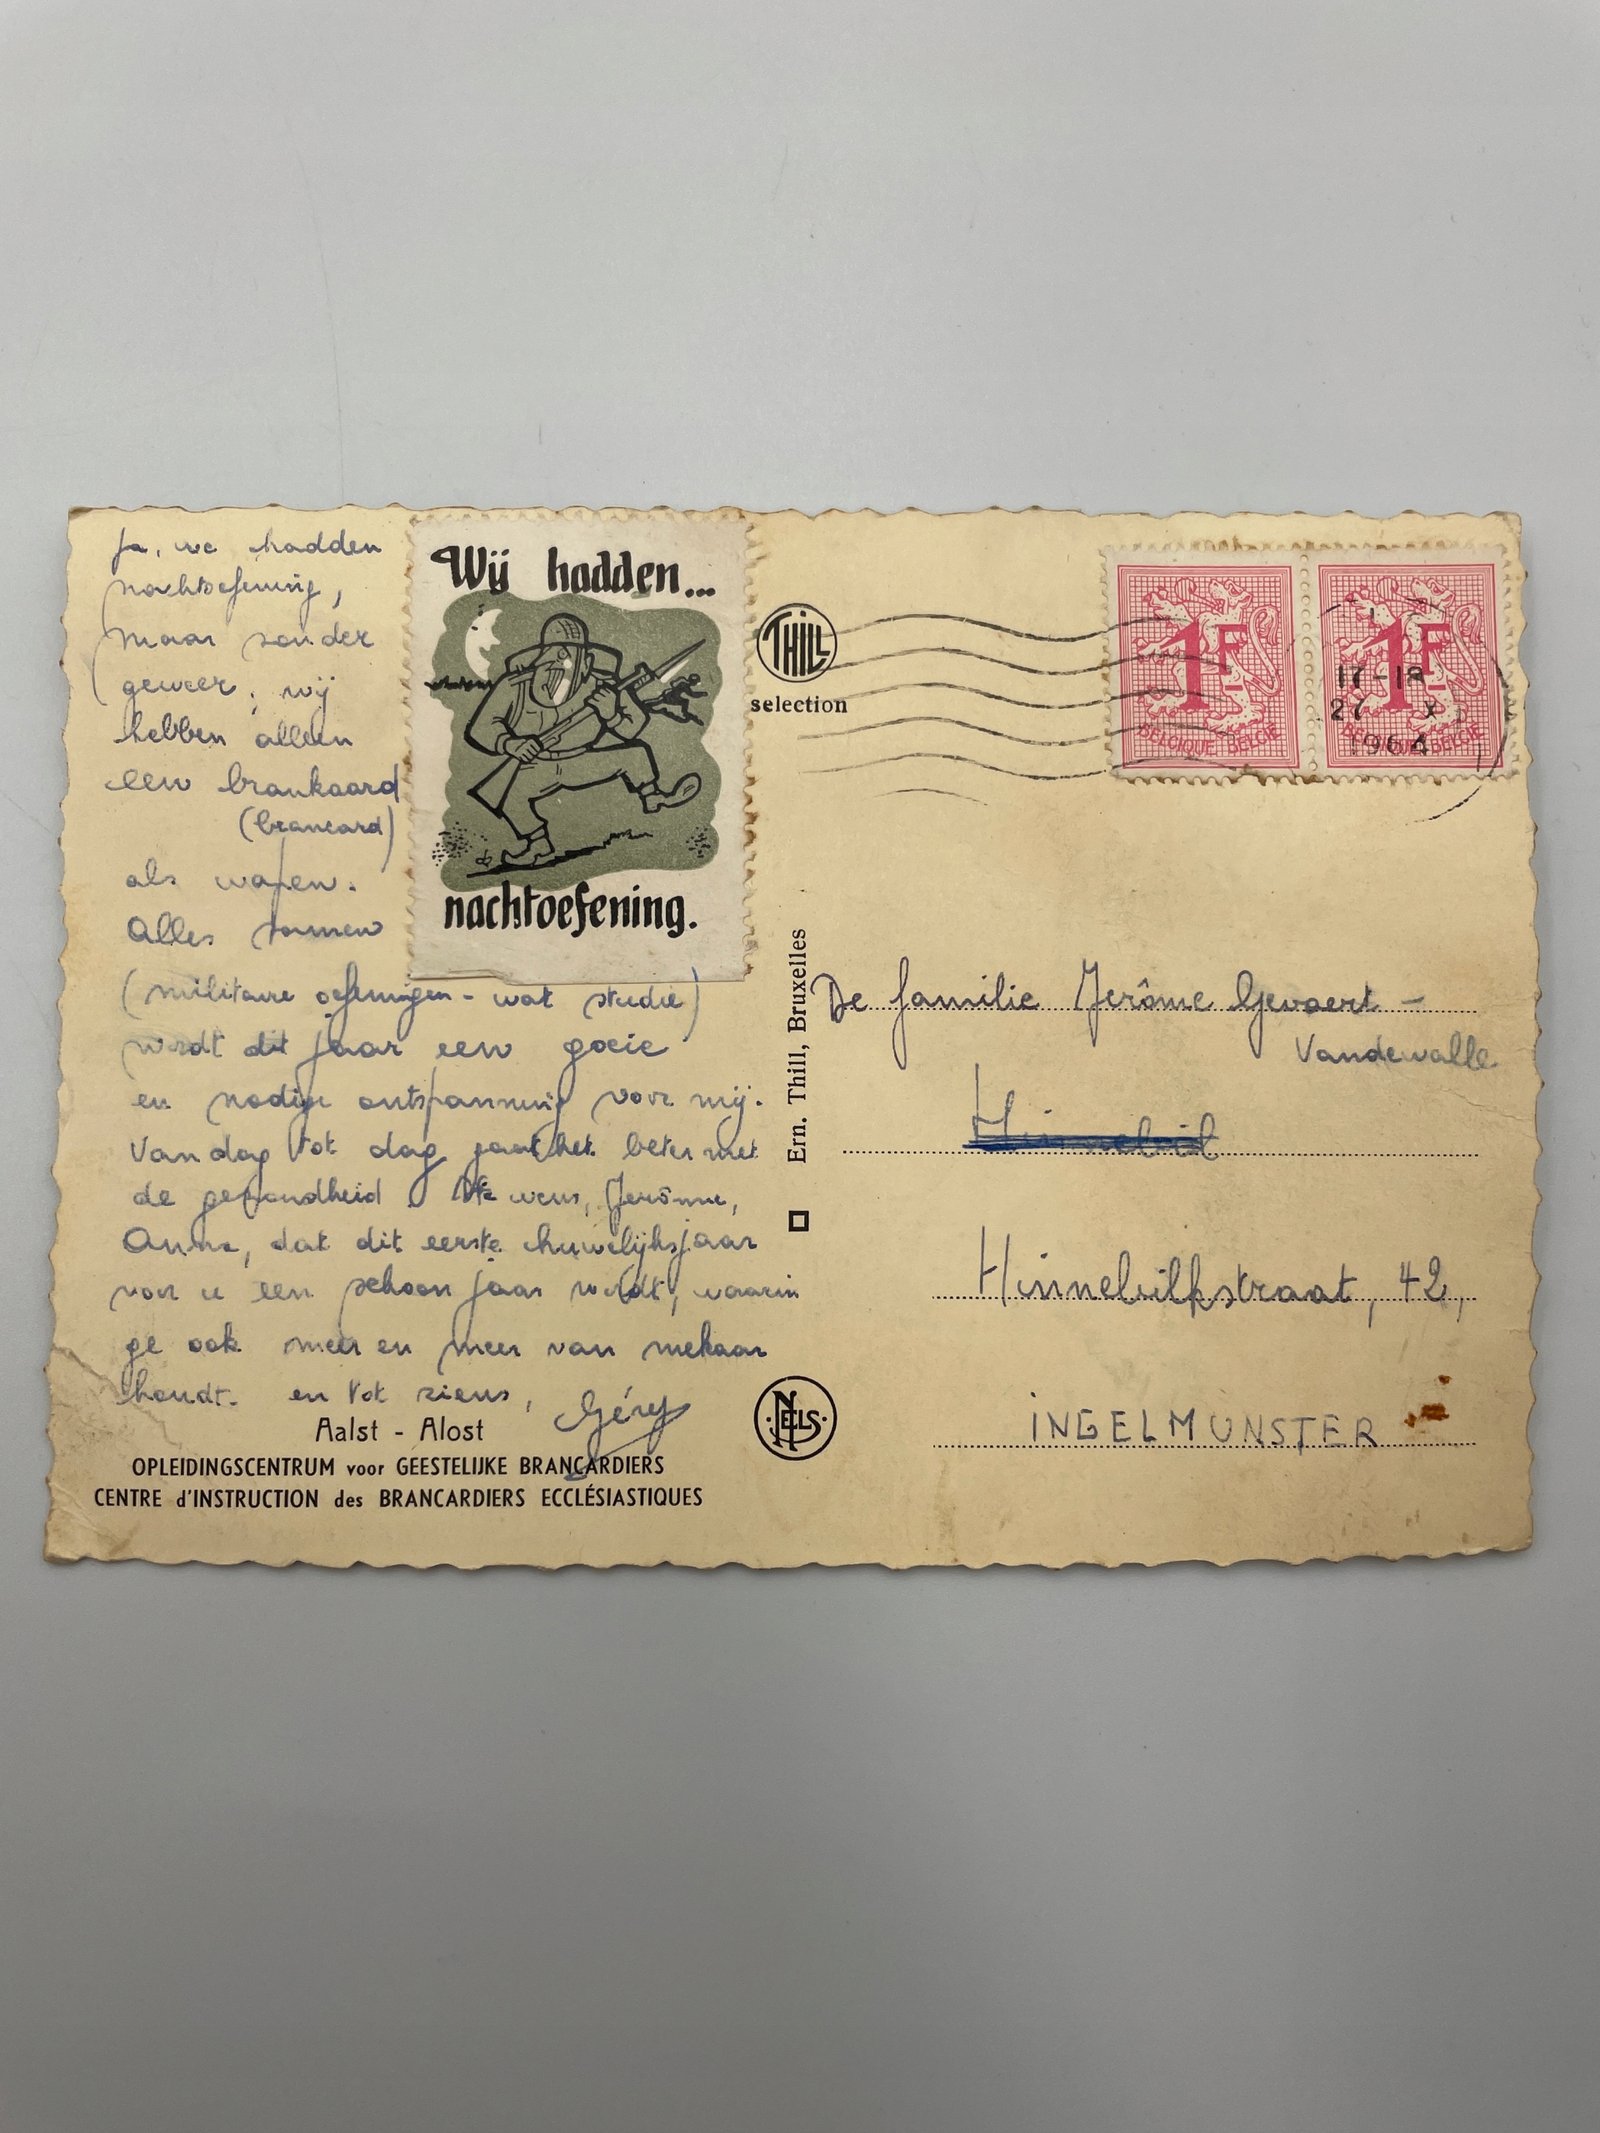 Ja, we hadden
nachtoefening,
maar zonder
geweer, wij
hebben alleen
een brankaard
(brancard)
als wapen.
Alles samen
(militaire oefeningen - wat studie)
wordt dit jaar een goeie
en nodige ontspanning voor mij.
Van dag tot dag gaat het beter met
de gezondheid. Ik wens, Jerôme,
Anna, dat dit eerste huwelijksjaar
voor u een schoon jaar wordt, waarin
ge ook meer en meer van mekaar
houdt. en tot ziens,
Géry
Aalst - Alost
OPLEIDINGSCENTRUM voor GEESTELIJKE BRANCARDIERS
CENTRE d'INSTRUCTION des BRANCARDIERS ECCLÉSIASTIQUES
Wij hadden...
nachtoefening.
THILL
selection
Ern. Thill, Bruxelles
NELS
1F
BELGIQUE-BELGIË
1F
BELGIQUE-BELGIË
17-18
27 X
1964
De familie Jerôme Gevaert -
Vandewalle
Hinnebilkstraat, 42,
INGELMUNSTER